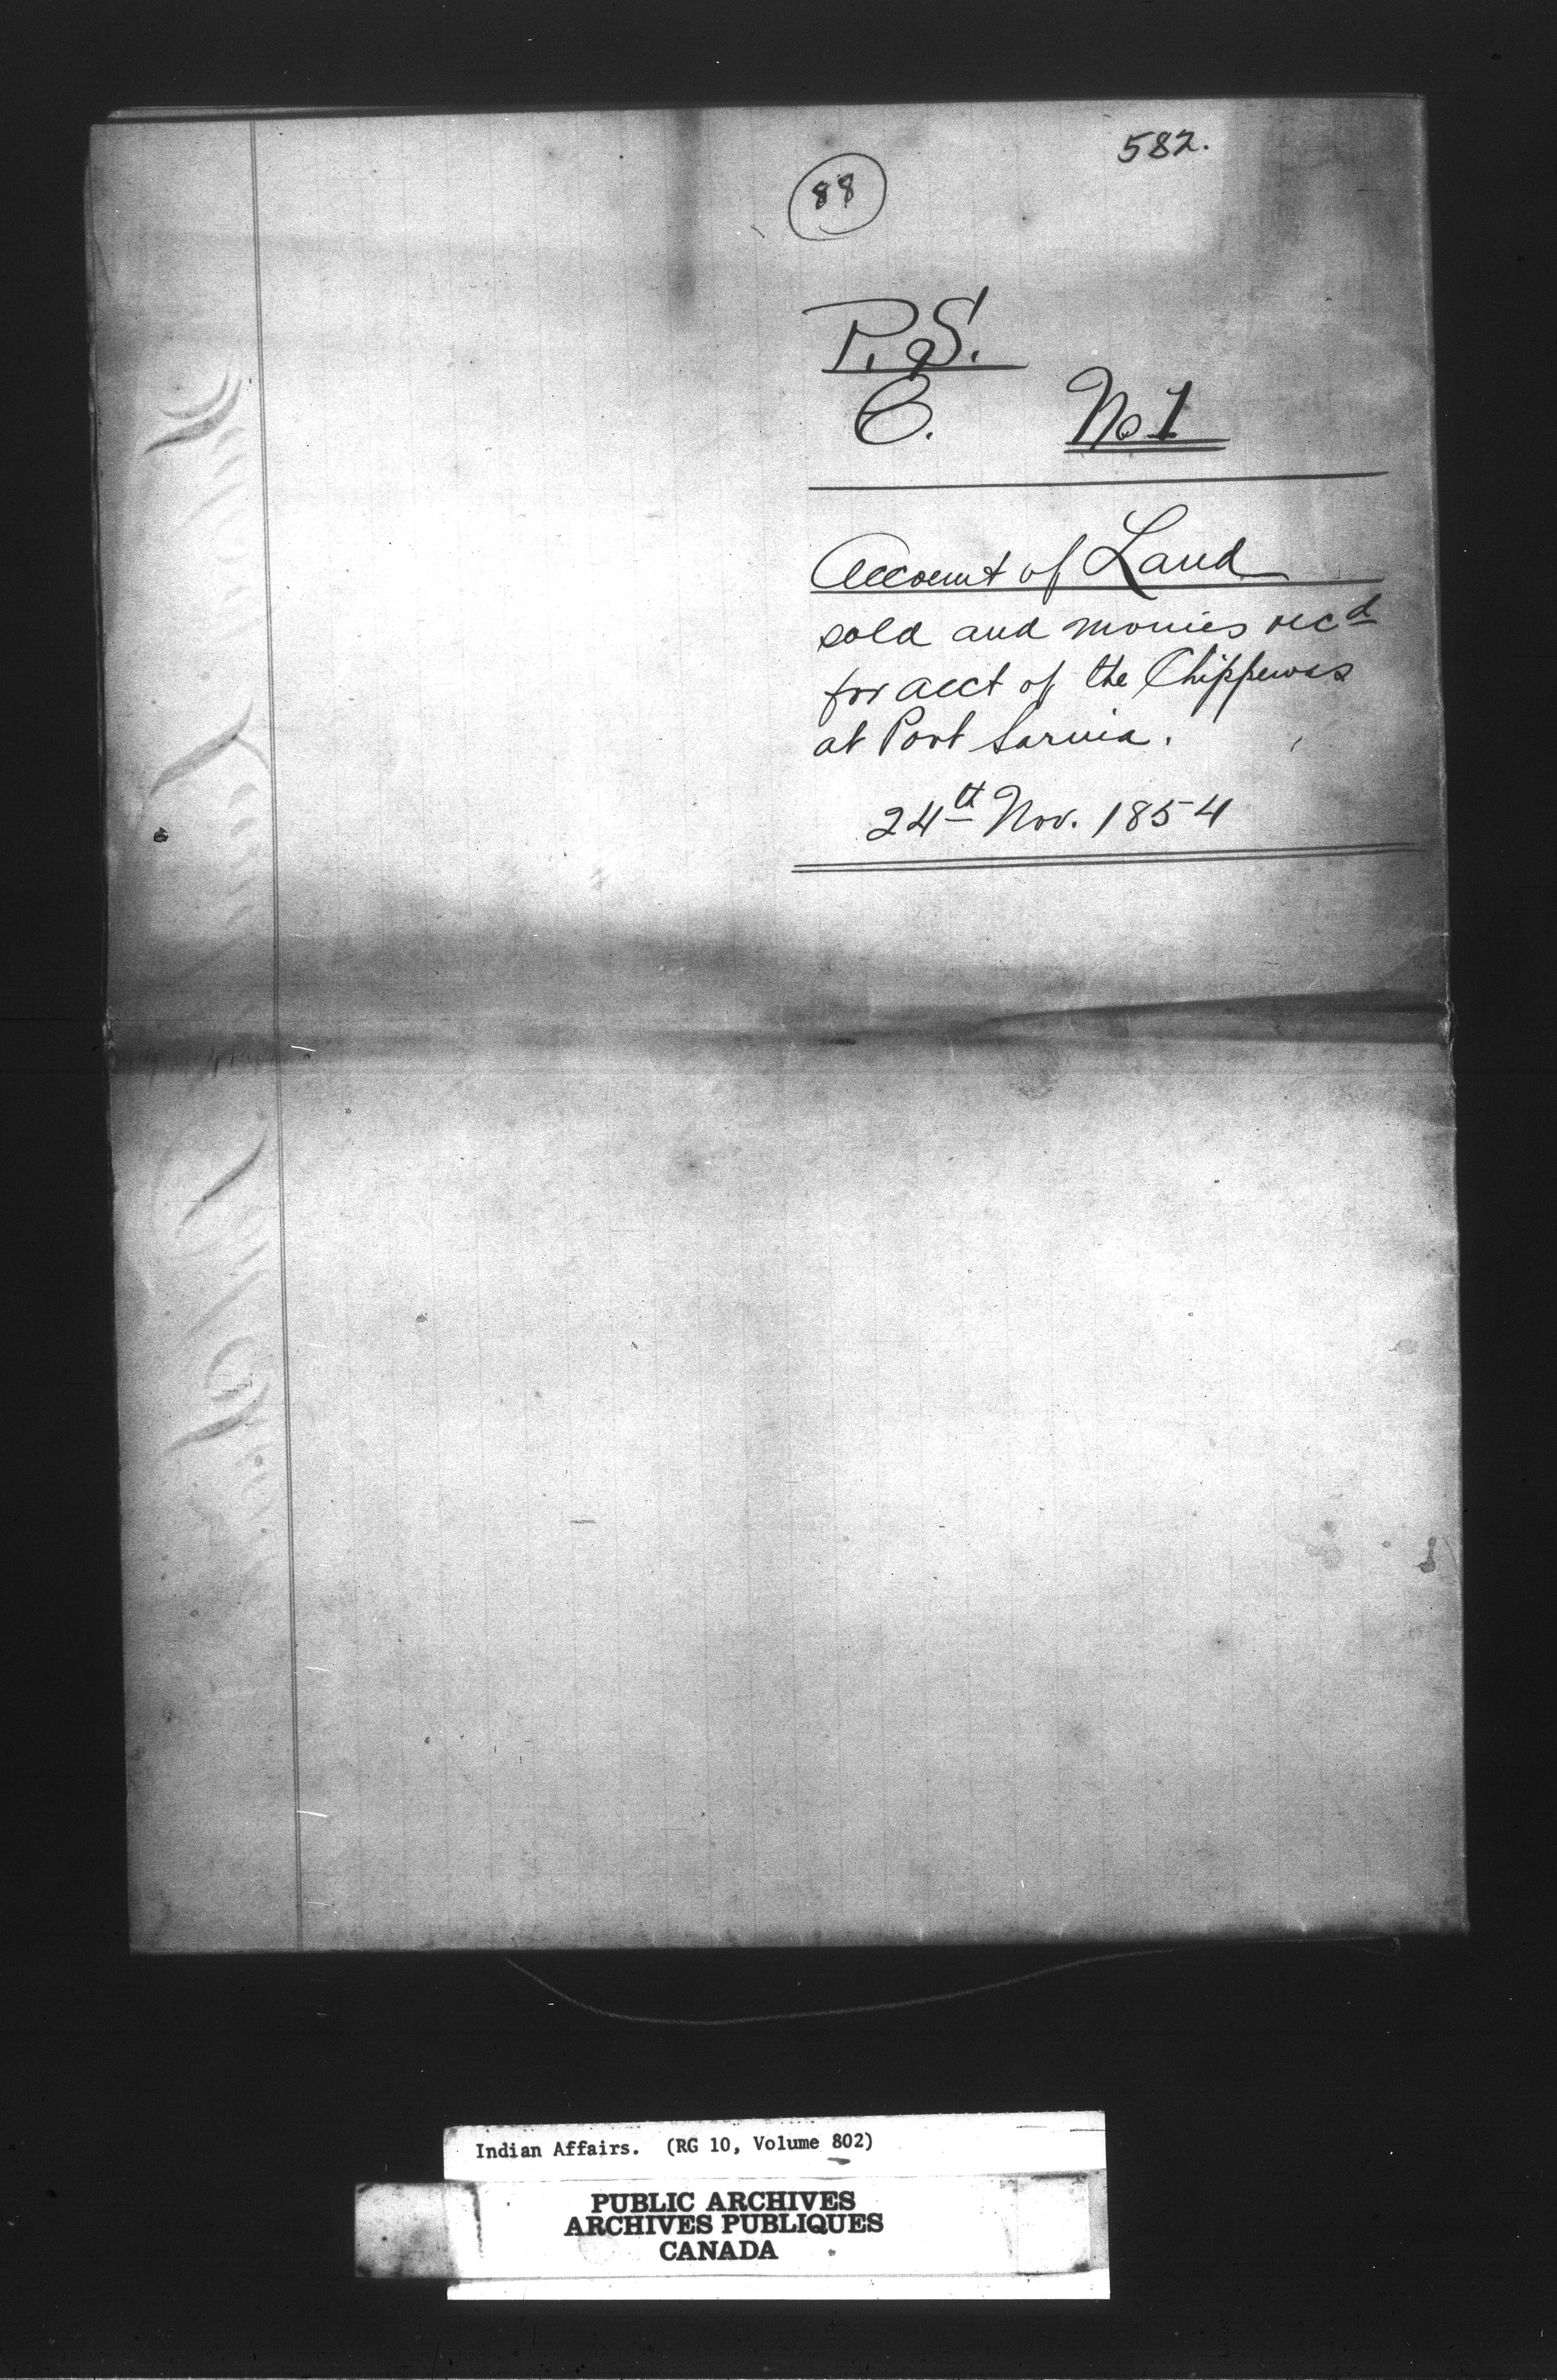 582.
88
P.S.
C. No 1
Account of Land
sold and monies recd
for acct of the Chippewas
at Port Sarnia.
24th Nov. 1854
Indian Affairs. (RG 10, Volume 802)
PUBLIC ARCHIVES
ARCHIVES PUBLIQUES
CANADA